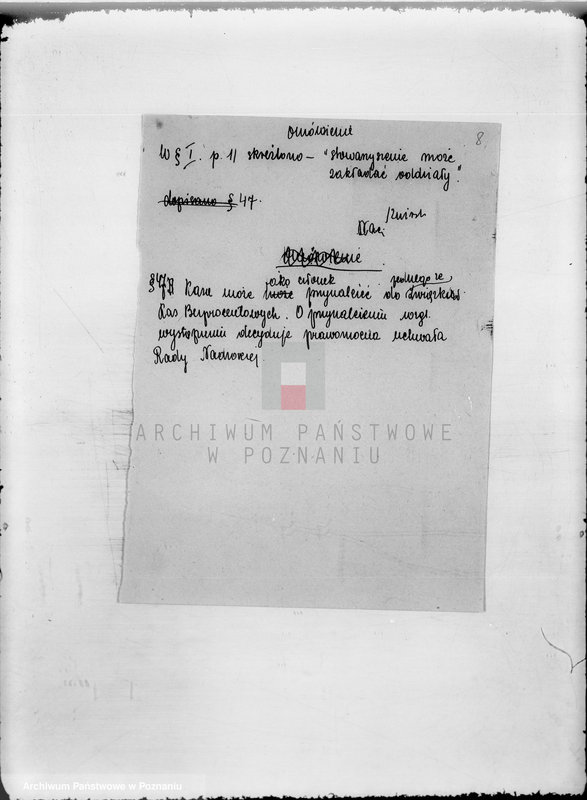 Omówienie
8
W § I. p. 1/ skreślono – "stowarzyszenie może
zakładać oddziały".
dopisano § 47.
§ 47 Kasa może jako członek przynależeć do jednego ze Związków
Kas Bezprocentowych. O przynależeniu wzgl.
wystąpieniu decyduje prawomocna uchwała
Rady Nadzorczej.
ARCHIWUM PAŃSTWOWE
W POZNANIU
Archiwum Państwowe w Poznaniu